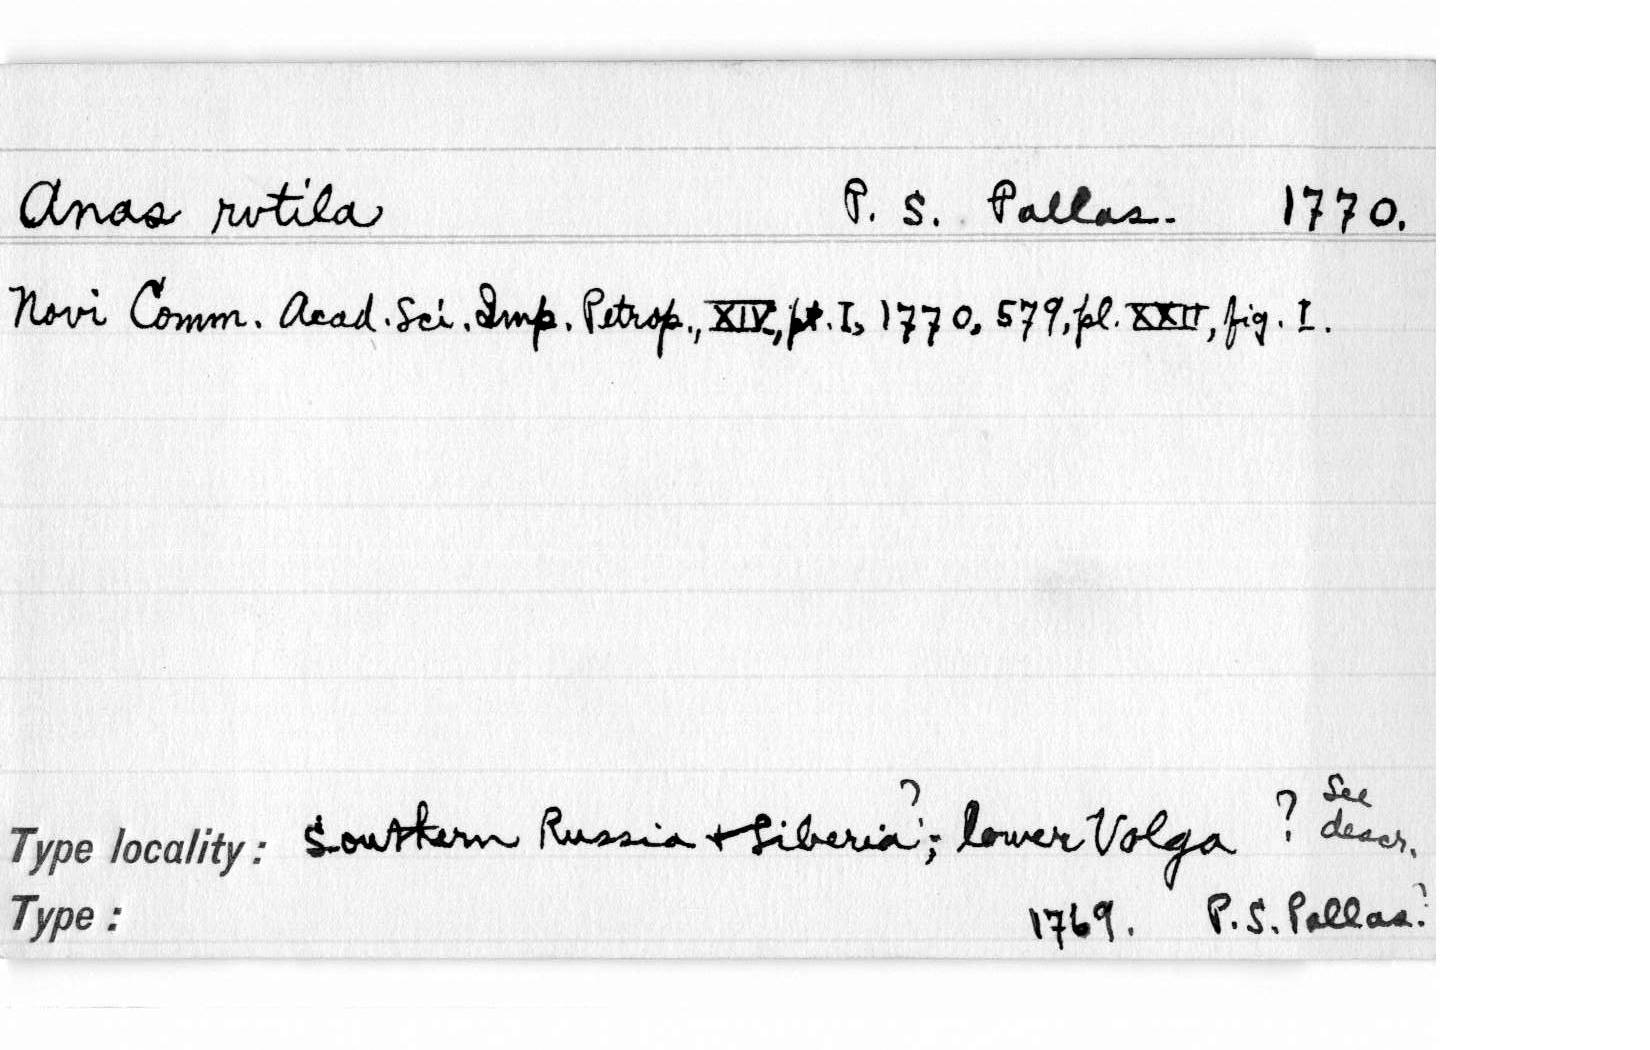 Anas rutila P. S. Pallas. 1770.
Novi Comm. Acad. Sci. Imp. Petrop., XIV, pt. I, 1770, 579, pl. XXII, fig. I.
Type locality: Southern Russia + Siberia?; lower Volga ? See descr.
Type: 1769. P. S. Pallas.?